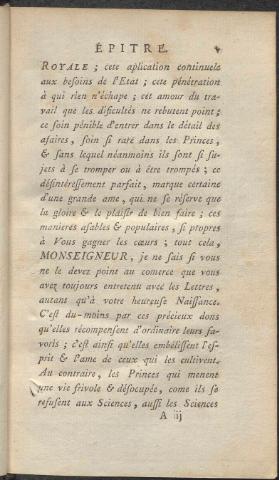 ÉPITRE.
ROYALE ; cete aplication continuele
aux besoins de l'Etat ; cete pénétration
à qui rien n'échape ; cet amour du tra-
vail que les dificultés ne rebutent point ;
ce soin pénible d'entrer dans le détail des
afaires, soin si rare dans les Princes,
& sans lequel néanmoins ils sont si su-
jets à se tromper ou à être trompés ; ce
désintéressement parfait, marque certaine
d'une grande ame, qui ne se réserve que
la gloire & le plaisir de bien faire ; ces
manieres afables & populaires, si propres
à Vous gagner les cœurs ; tout cela,
MONSEIGNEUR, je ne sais si vous
ne le devez point au comerce que vous
avez toujours entretenu avec les Lettres,
autant qu'à votre heureuse Naissance.
C'est du-moins par ces précieux dons
qu'elles récompensent d'ordinaire leurs fa-
voris ; c'est ainsi qu'elles embélissent l'es-
prit & l'ame de ceux qui les cultivent.
Au contraire, les Princes qui menent
une vie frivole & désocupée, come ils se
refusent aux Sciences, aussi les Sciences
A iij